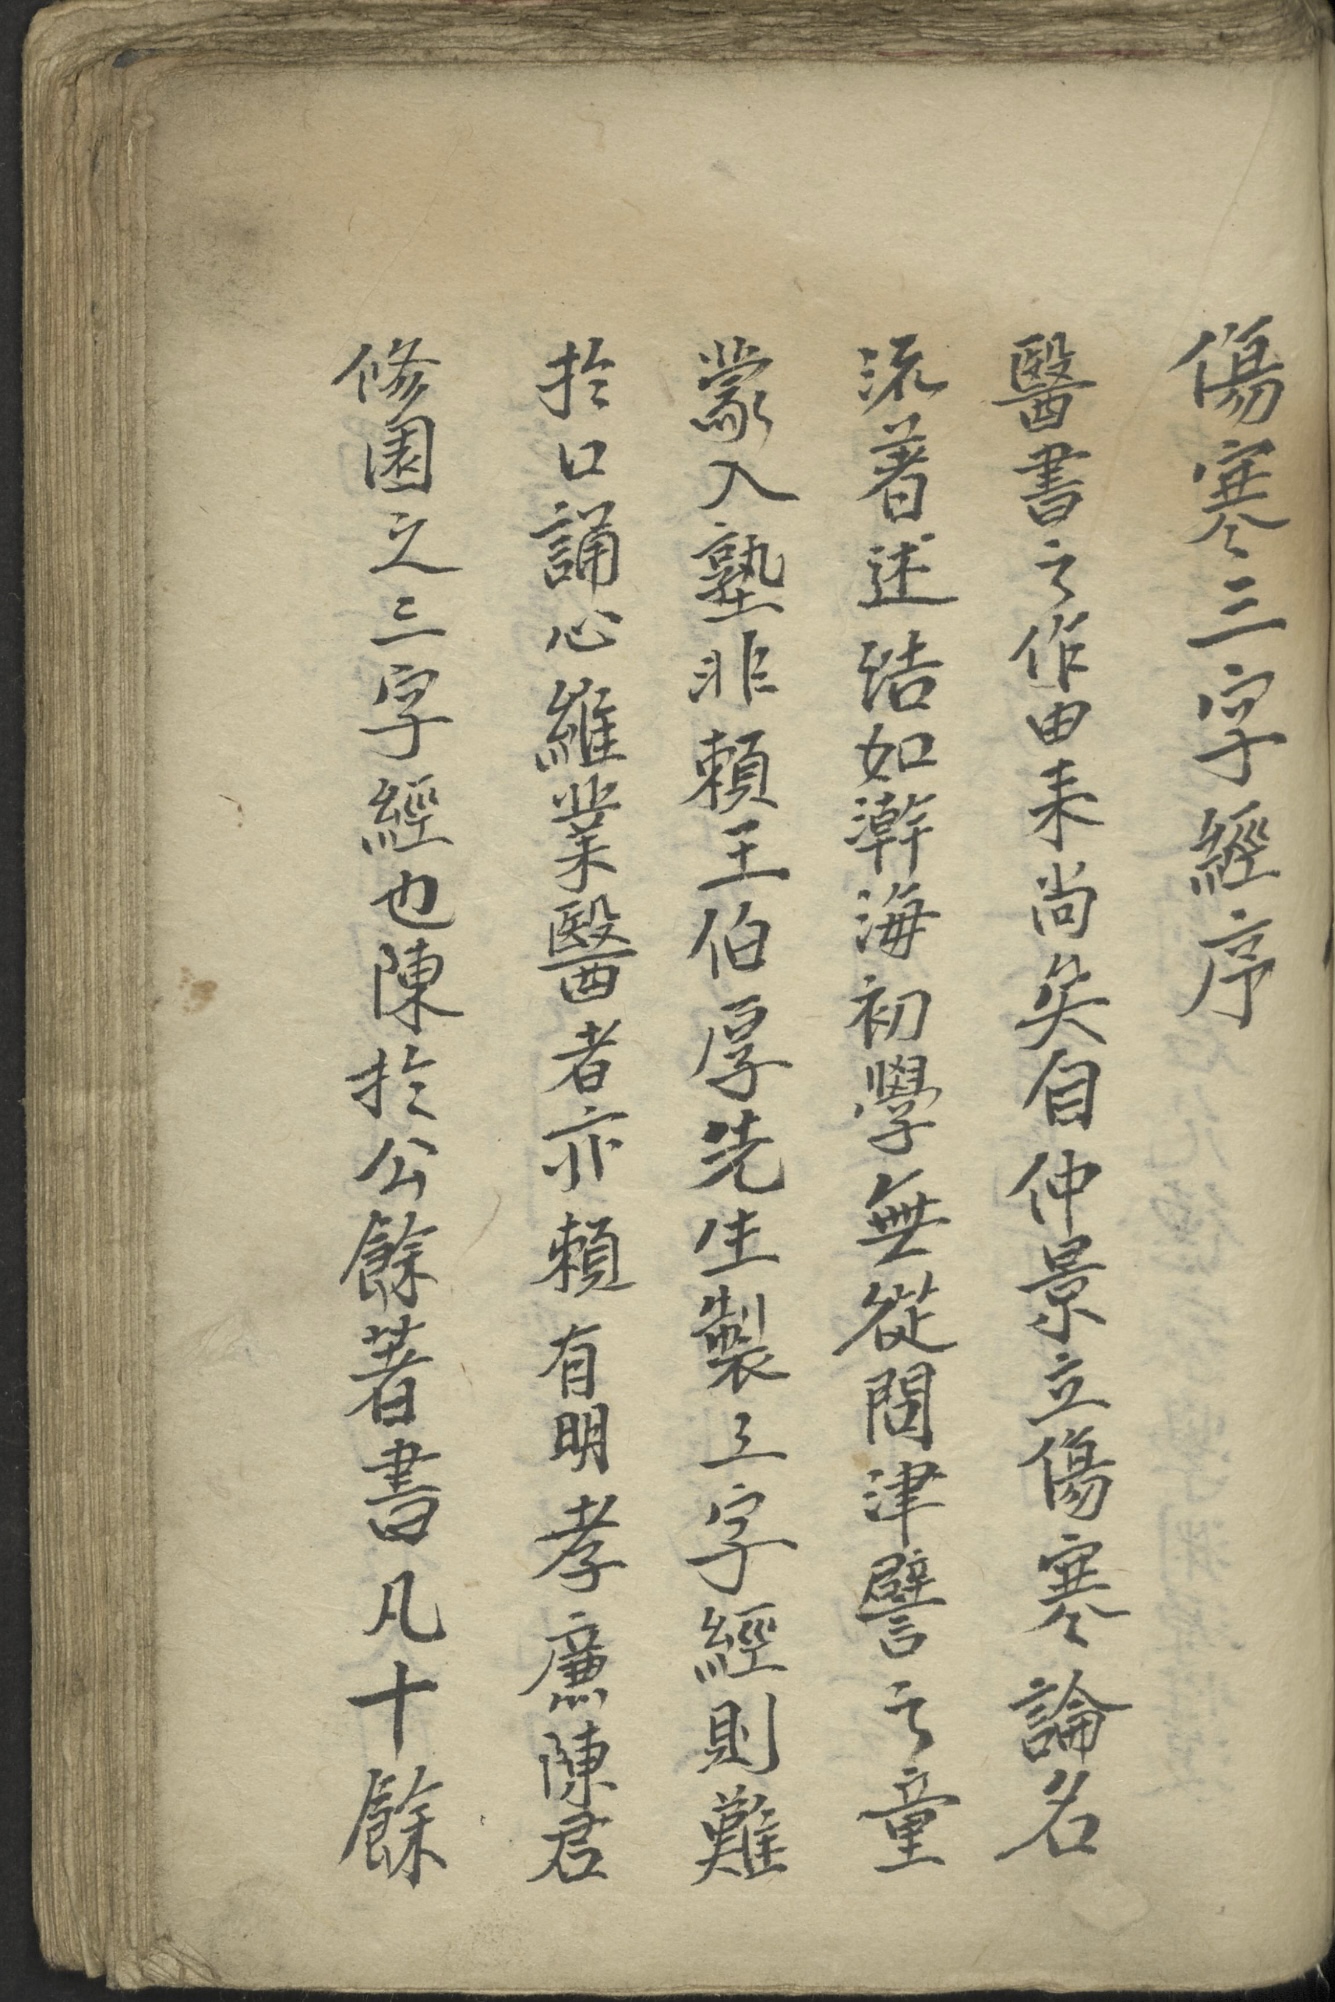 傷寒三字經序
醫書之作由来尚矣自仲景立傷寒論名
流著述浩如澣海初學無從問津譬之童
蒙入塾非賴王伯厚先生製三字經則難
於口誦心維業醫者亦賴有明孝廉陳君
修園之三字經也陳於公餘著書凡十餘